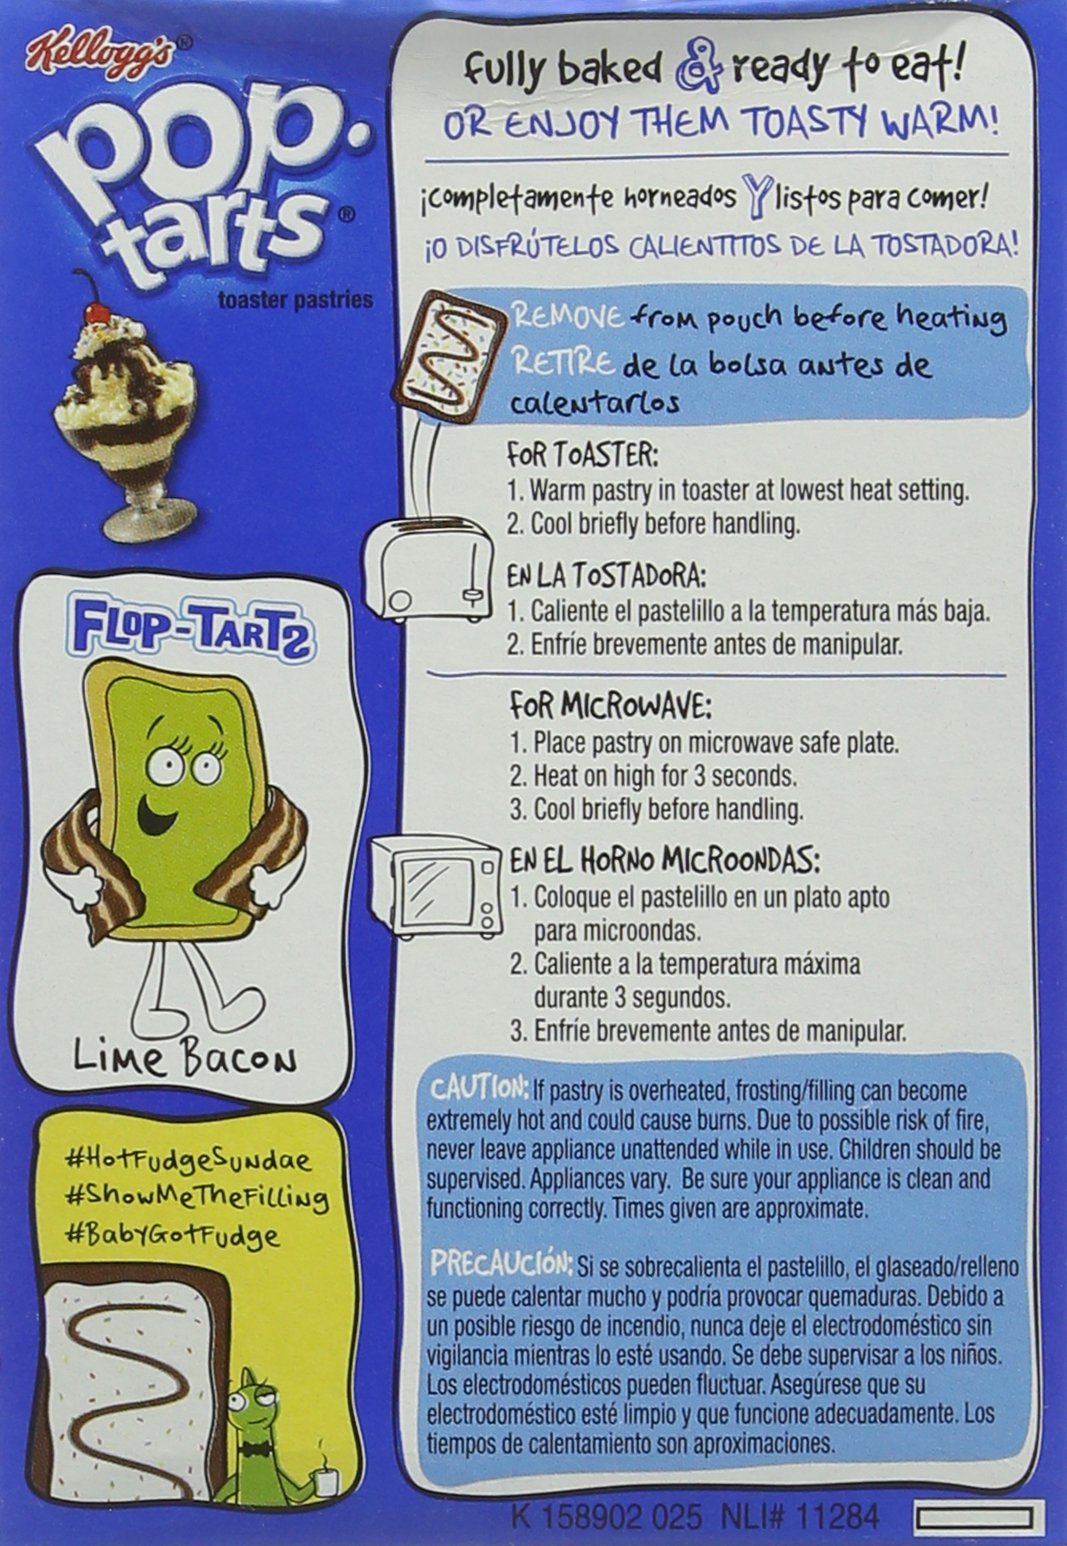 Kellogg's®
pop.
tarts®
toaster pastries
fully baked & ready to eat!
OR ENJOY THEM TOASTY WARM!
¡Completamente horneados Y listos para comer!
¡O DISFRÚTELOS CALIENTITOS DE LA TOSTADORA!
REMOVE from pouch before heating
RETIRE de la bolsa antes de
calentarlos
FOR TOASTER:
1. Warm pastry in toaster at lowest heat setting.
2. Cool briefly before handling.
EN LA TOSTADORA:
1. Caliente el pastelillo a la temperatura más baja.
2. Enfríe brevemente antes de manipular.
FOR MICROWAVE:
1. Place pastry on microwave safe plate.
2. Heat on high for 3 seconds.
3. Cool briefly before handling.
EN EL HORNO MICROONDAS:
1. Coloque el pastelillo en un plato apto
para microondas.
2. Caliente a la temperatura máxima
durante 3 segundos.
3. Enfríe brevemente antes de manipular.
CAUTION: If pastry is overheated, frosting/filling can become
extremely hot and could cause burns. Due to possible risk of fire,
never leave appliance unattended while in use. Children should be
supervised. Appliances vary. Be sure your appliance is clean and
functioning correctly. Times given are approximate.
PRECAUCIÓN: Si se sobrecalienta el pastelillo, el glaseado/relleno
se puede calentar mucho y podría provocar quemaduras. Debido a
un posible riesgo de incendio, nunca deje el electrodoméstico sin
vigilancia mientras lo esté usando. Se debe supervisar a los niños.
Los electrodomésticos pueden fluctuar. Asegúrese que su
electrodoméstico esté limpio y que funcione adecuadamente. Los
tiempos de calentamiento son aproximaciones.
FLOP-TARTS
Lime Bacon
#HotFudgeSundae
#ShowMeTheFilling
#BabyGotFudge
K 158902 025 NLI# 11284